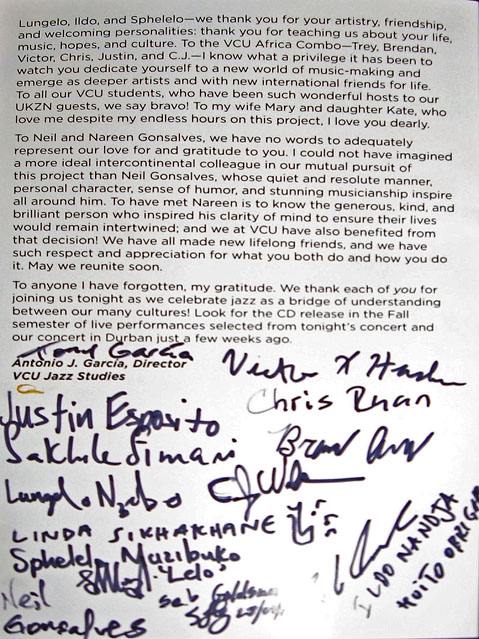 Lungelo, Ildo, and Sphelelo—we thank you for your artistry, friendship,
and welcoming personalities: thank you for teaching us about your life,
music, hopes, and culture. To the VCU Africa Combo—Trey, Brendan,
Victor, Chris, Justin, and C.J.—I know what a privilege it has been to
watch you dedicate yourself to a new world of music-making and
emerge as deeper artists and with new international friends for life.
To all our VCU students, who have been such wonderful hosts to our
UKZN guests, we say bravo! To my wife Mary and daughter Kate, who
love me despite my endless hours on this project, I love you dearly.
To Neil and Nareen Gonsalves, we have no words to adequately
represent our love for and gratitude to you. I could not have imagined
a more ideal intercontinental colleague in our mutual pursuit of
this project than Neil Gonsalves, whose quiet and resolute manner,
personal character, sense of humor, and stunning musicianship inspire
all around him. To have met Nareen is to know the generous, kind, and
brilliant person who inspired his clarity of mind to ensure their lives
would remain intertwined; and we at VCU have also benefited from
that decision! We have all made new lifelong friends, and we have
such respect and appreciation for what you both do and how you do
it. May we reunite soon.
To anyone I have forgotten, my gratitude. We thank each of you for
joining us tonight as we celebrate jazz as a bridge of understanding
between our many cultures! Look for the CD release in the Fall
semester of live performances selected from tonight's concert and
our concert in Durban just a few weeks ago.
Tony Garcia
Antonio J. García, Director
VCU Jazz Studies
Victor
Chris Ryan
Justin Esposito
Sakhile Simani
Lungelo
LINDA SIKHAKHANE
Sphelelo Mazibuko
"Lelo"
ILDO NANDJA
MUITO OBRIGADO
Neil
Gonsalves